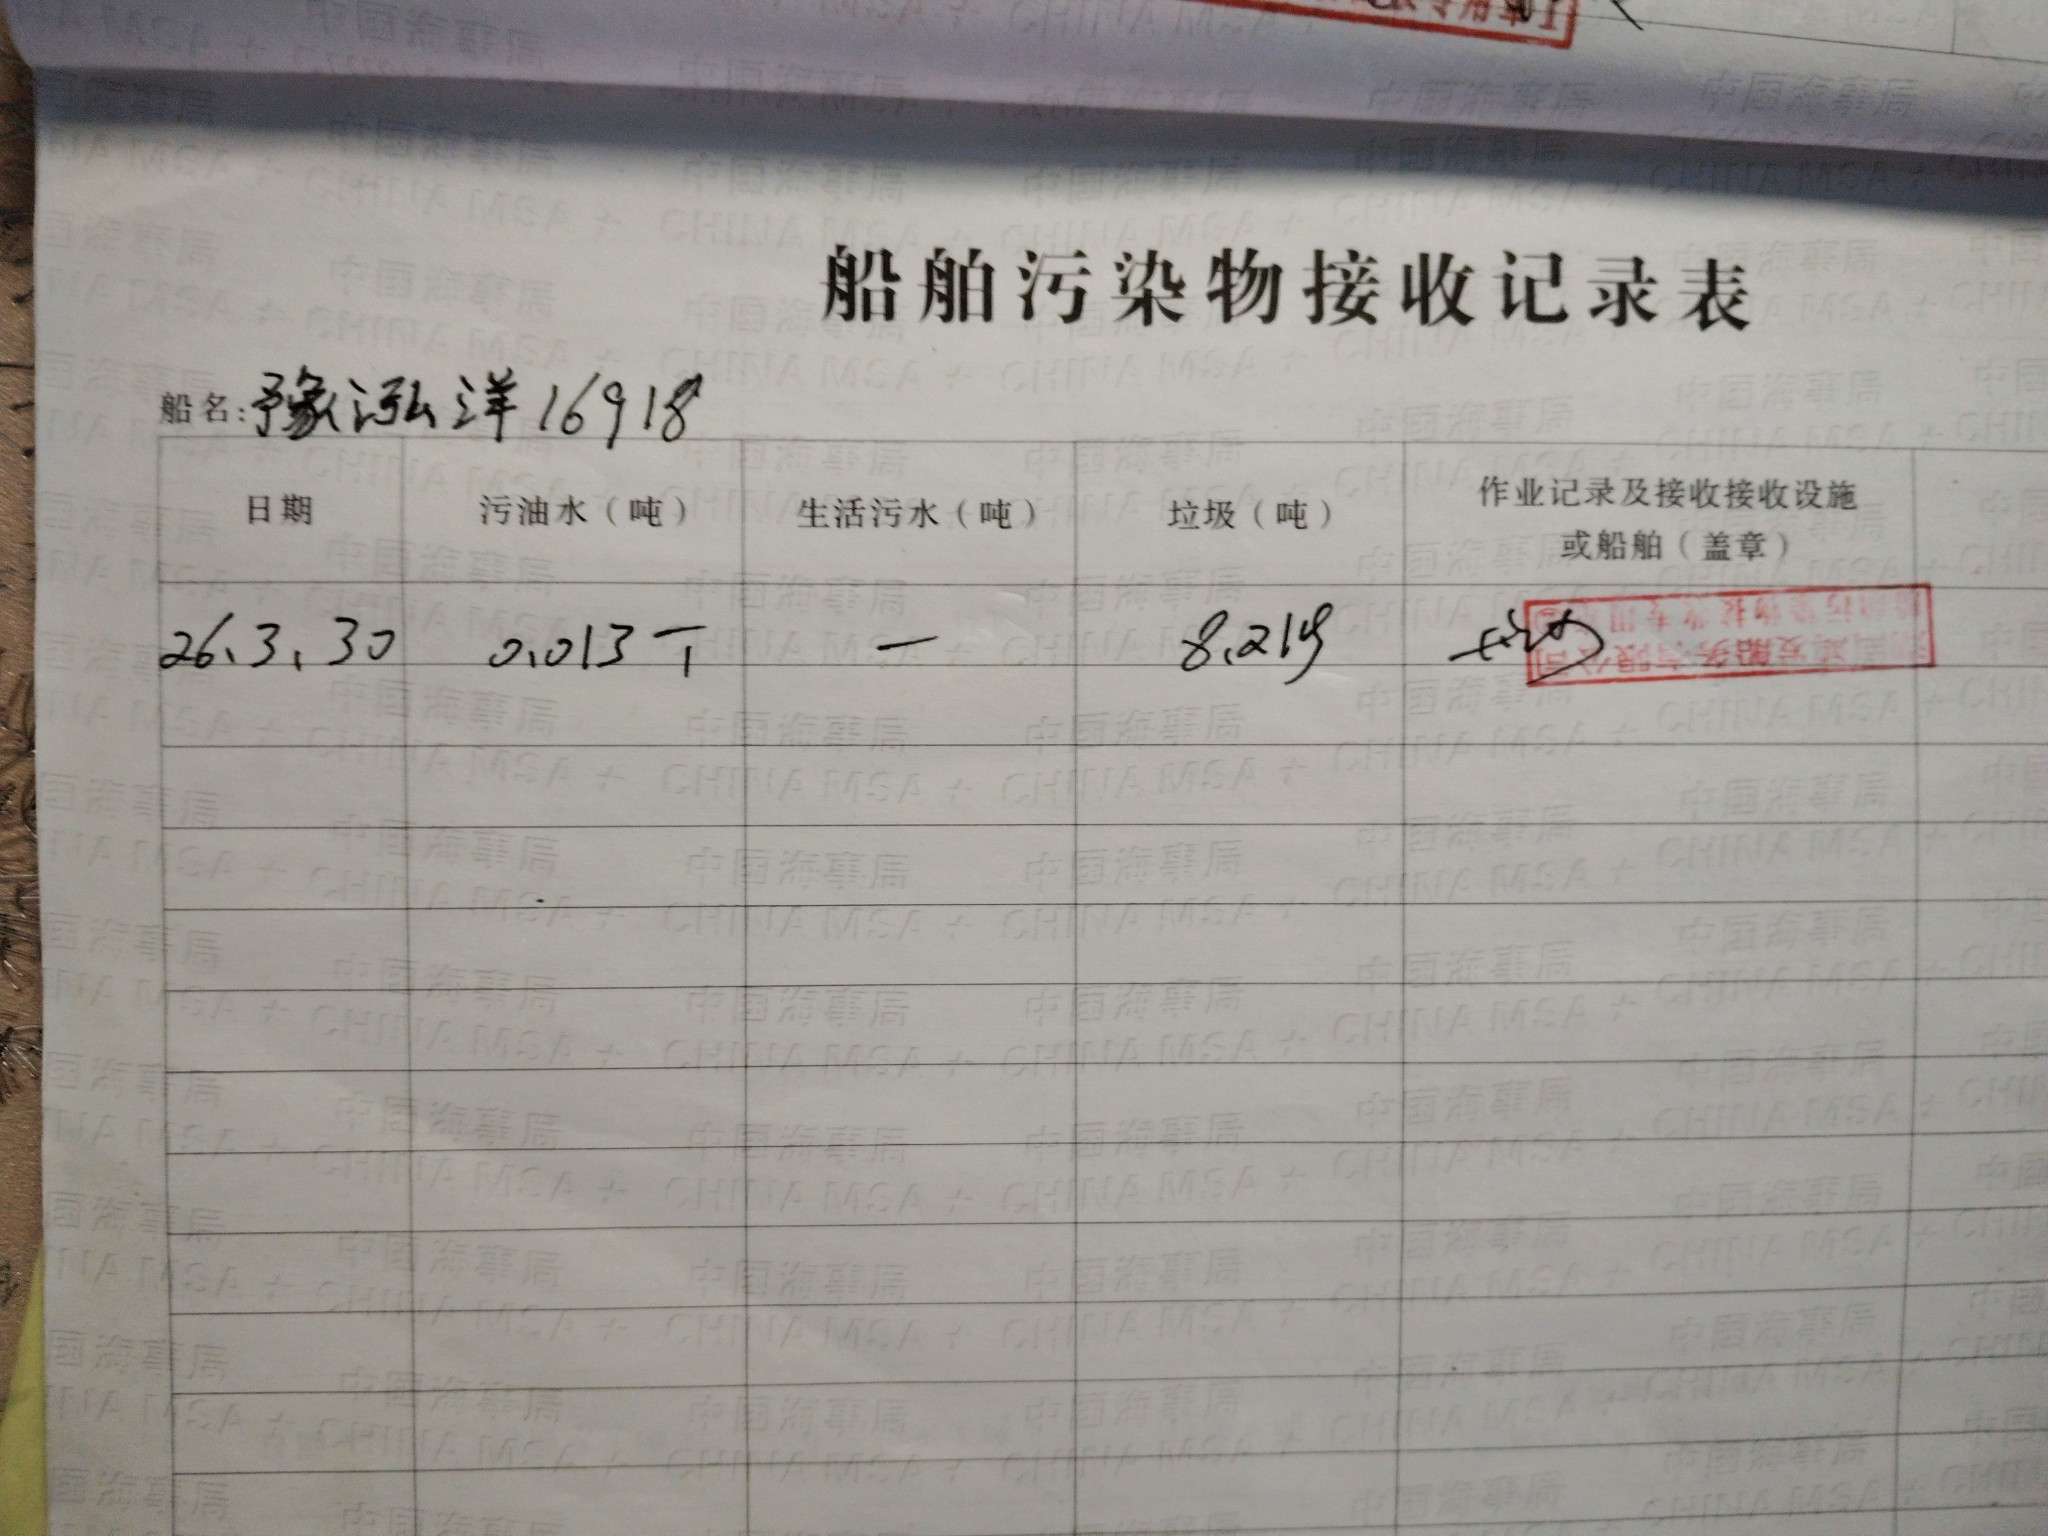 船舶污染物接收记录表
船名:豫泓洋16918
日期 污油水（吨） 生活污水（吨） 垃圾（吨） 作业记录及接收接收设施
或船舶（盖章）
26.3.30 0.013T — 8.219
中国海事局
CHINA MSA